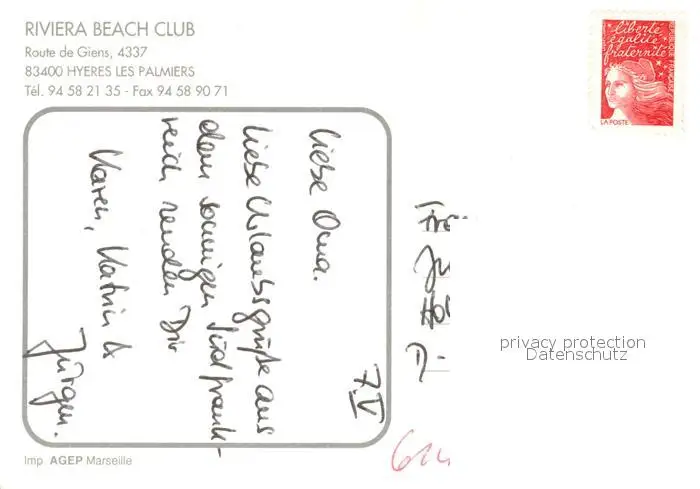 RIVIERA BEACH CLUB
Route de Giens, 4337
83400 HYERES LES PALMIERS
Tél. 94 58 21 35 - Fax 94 58 90 71
liberté
égalité
fraternité
RÉPUBLIQUE FRANÇAISE
LA POSTE
Liebe Oma.
liebe Urlaubsgrüße aus
dem sonnigen Südfrank-
reich senden Dir
Karen, Katrin &
Jürgen.
privacy protection
Datenschutz
Imp. AGEP Marseille